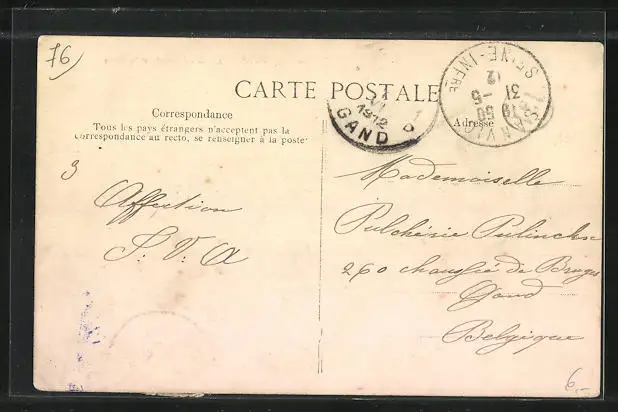 76
CARTE POSTALE
Correspondance
Tous les pays étrangers n'acceptent pas la
correspondance au recto, se renseigner à la poste
Adresse
VI
1912
GAND
SANVIC
19 50
31 - 5
12
SEINE-INFRE
3
Affection
S. V. A
Mademoiselle
Pulchérie Pulinckx
260 chaussée de Bruges
Gand
Belgique
6.-